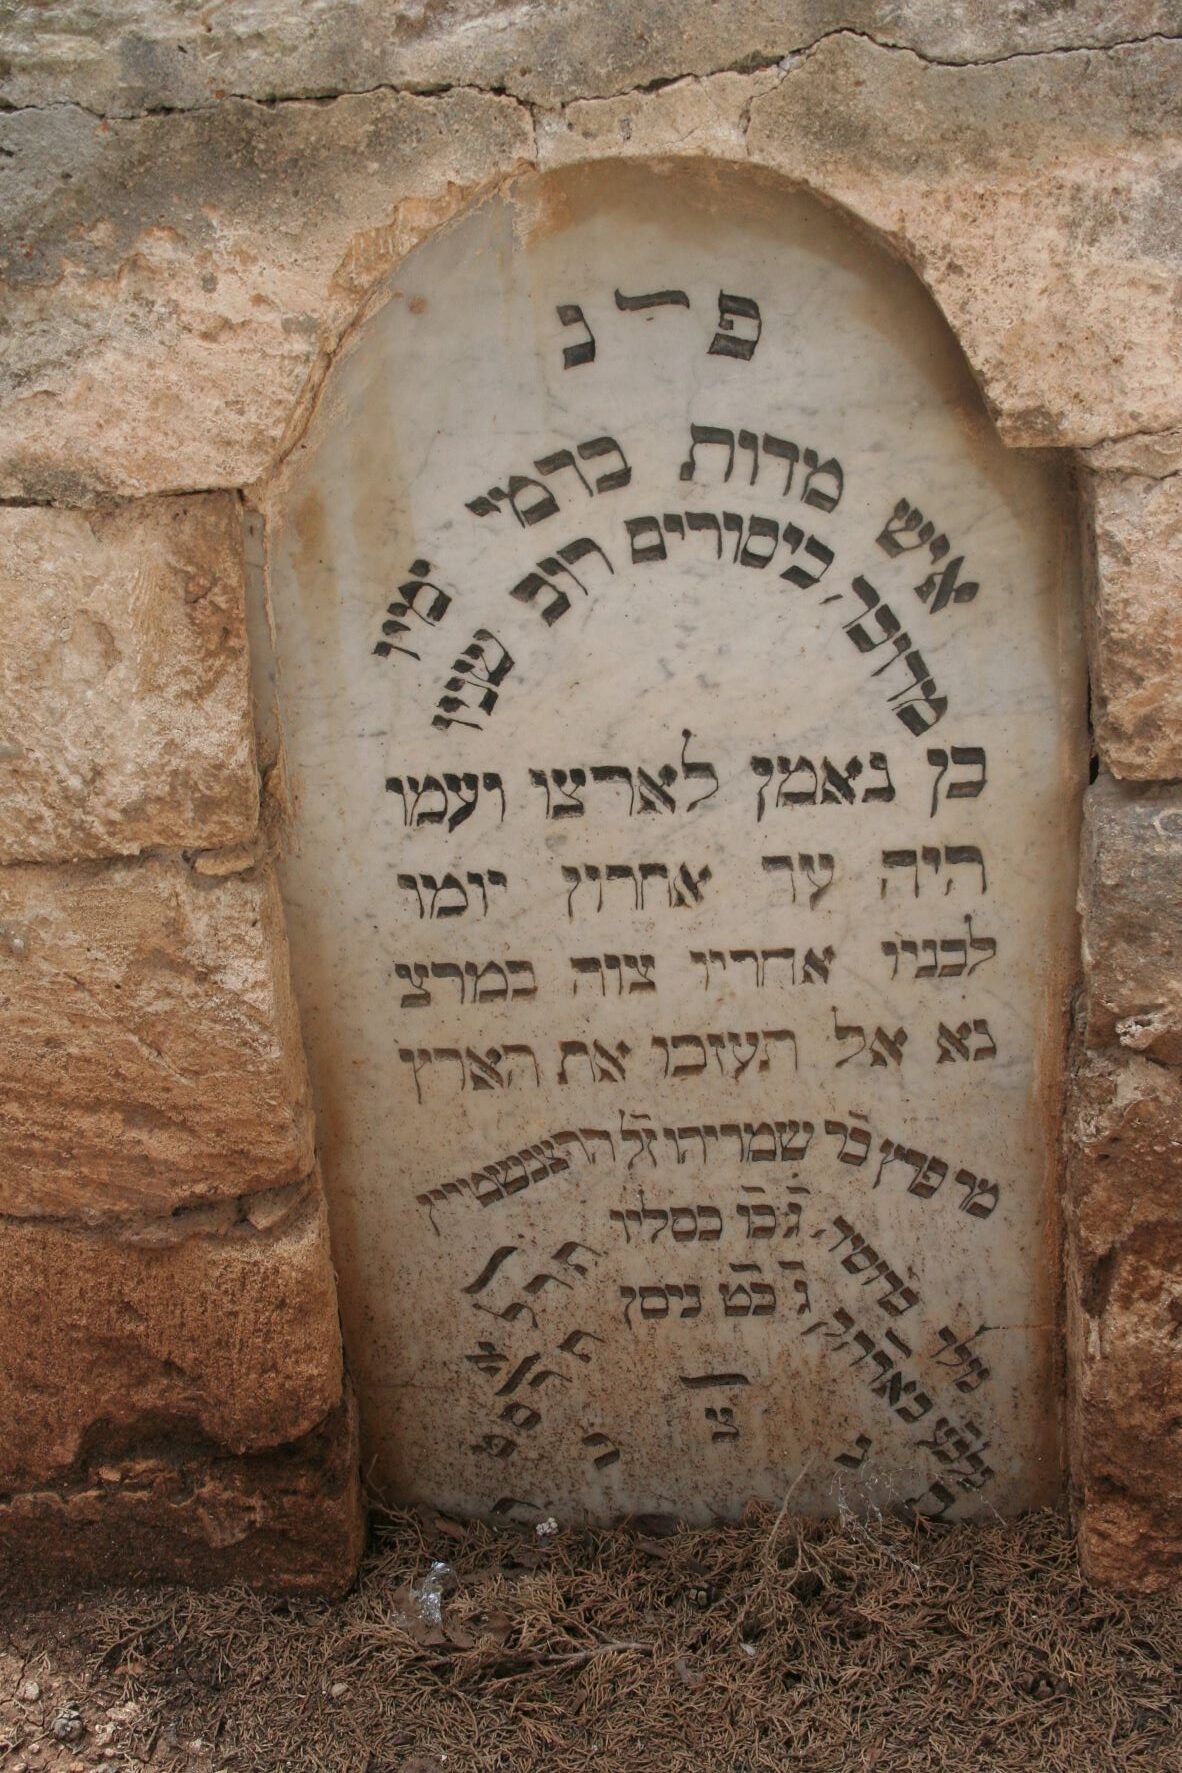 פ־נ
איש מדות ברמי מין
ביסורים רוח
בן נאמן לארצו ועמו
היה עד אחרון יומו
לבניו אחריו צוה במרצ
נא אל תעזבו את הארץ
מר פרץ ב״ר שמריהו ז״ל הרצנשטיין
נולד ברוסיה ג׳ כ״ו כסליו
נלב״ע ג׳ כ״ט ניסן
ת נ צ ב ה